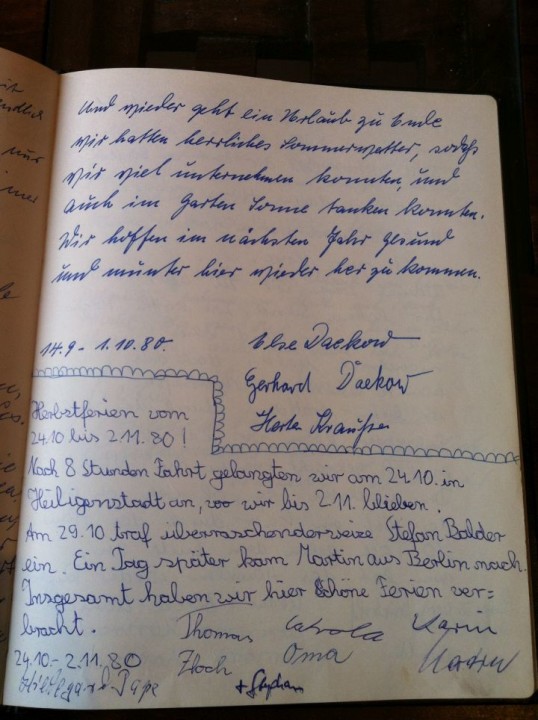 Und wieder geht ein Urlaub zu Ende
wir hatten herrliches Sommerwetter, sodaß
wir viel unternehmen konnten, und
auch im Garten Sonne tanken konnten.
Wir hoffen im nächsten Jahr gesund
und munter hier wieder her zu kommen.
14.9 - 1.10.80.
Else Daekow
Gerhard Daekow
Herbstferien vom
24.10 bis 2.11.80!
Nach 8 Stunden Fahrt gelangten wir am 24.10. in
Heiligenstadt an, wo wir bis 2.11. blieben.
Am 29.10 traf überraschenderweize Stefan Balder
ein. Ein Tag später kam Martin aus Berlin nach.
Insgesamt haben wir hier schöne Ferien ver=
bracht.
Thomas Karin
24.10.-2.11.80 Oma
Hildegard Pape + Stephan